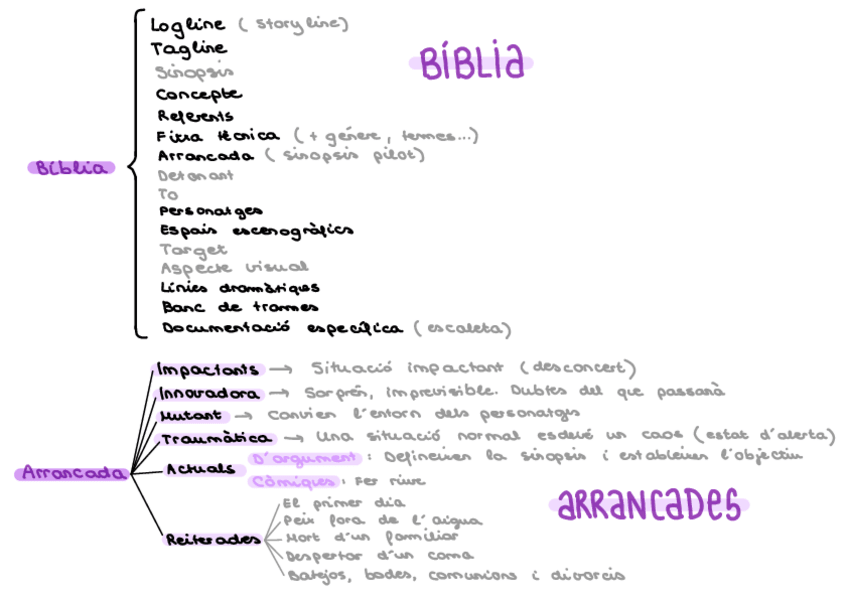 BÍBLIA
Bíblia
Logline (storyline)
Tagline
Sinopsis
Concepte
Referents
Fitxa tècnica (+ gènere, temes...)
Arrancada (sinopsis pilot)
Detonant
To
Personatges
Espais escenogràfics
Target
Aspecte visual
Línies dramàtiques
Banc de trames
Documentació específica (escaleta)
ARRANCADES
Arrancada
Impactants → Situació impactant (desconcert)
Innovadora → Sorprèn, imprevisible. Dubtes del que passarà
Mutant → Canvien l'entorn dels personatges
Traumàtica → Una situació normal esdevé un caos (estat d'alerta)
Actuals
D'argument: Defineixen la sinopsis i estableixen l'objectiu
Còmiques: Fer riure
Reiterades
El primer dia
Peix fora de l'aigua
Mort d'un familiar
Despertar d'un coma
Batejos, bodes, comunions i divorcis